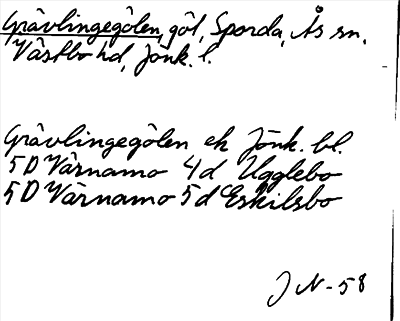 Grävlingegölen, göl, Sporda, Ås sn.
Västbo hd, Jönk. l.
Grävlingegölen ek Jönk. bl.
5D Värnamo 4d Ugglebo
5D Värnamo 5d Eskilsbo
J N - 58